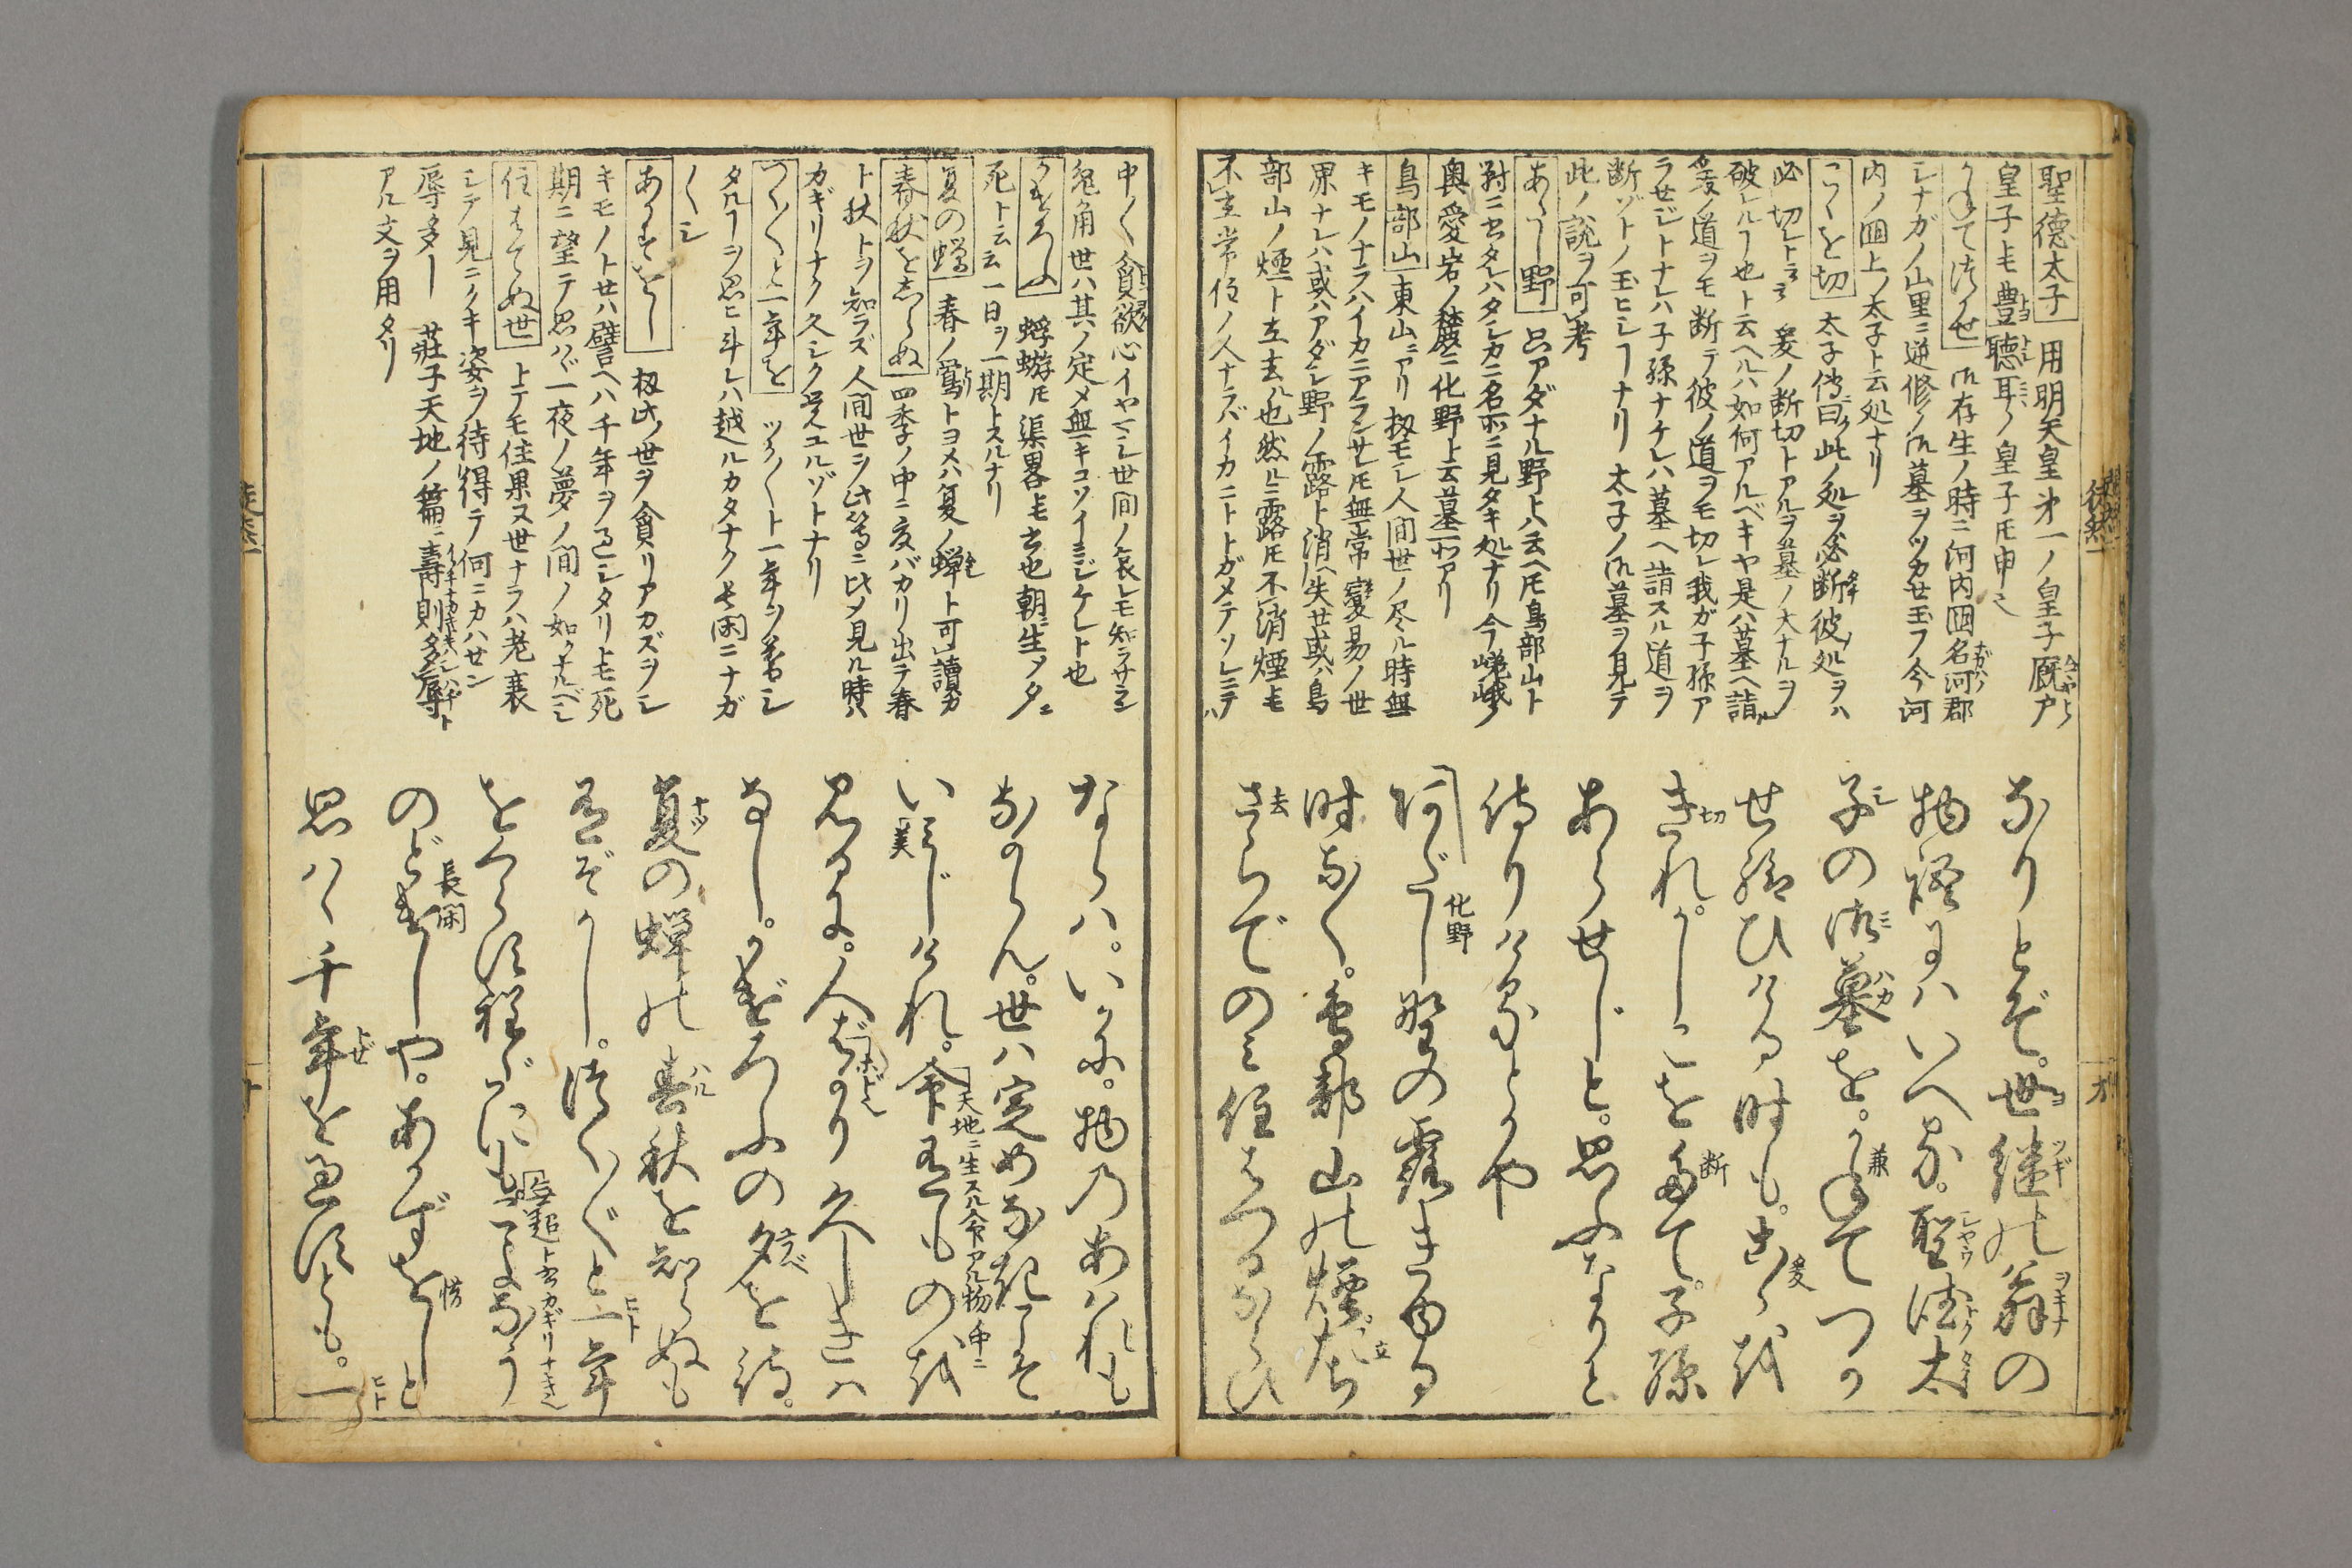 聖徳太子 用明天皇第一ノ皇子厩戸
皇子トモ豊聴耳ノ皇子トモ申也
かねて御つかせ 御存生ノ時ニ河内国石河郡
シナガノ山里ニ逆修ノ御墓ヲツカせ玉フ今河
内ノ国上ノ太子ト云処ナリ
こゝを切 太子傳曰此ノ処ヲ必断彼ノ処ヲハ
必切レト云云 爰ノ断切トアルヲ墓ノ大ナルヲ
破レル也ト云ヘルハ如何アルベキヤ是ハ墓ヘ詣ル
爰ノ道ヲモ断テ彼ノ道ヲモ切レ我ガ子孫ア
ラせジトナレハ子孫ナケレハ墓ヘ詣スル道ヲ
断ゾトノ玉ヒシナリ 太子ノ御墓ヲ見テ
此ノ説ヲ可考
あだし野 只アダナル野ト云ヘトモ鳥部山ト
對ニ出タレハタシカニ名所ニ見タキ処ナリ今嵯峨ノ
奥愛宕ノ麓ニ化野ト云墓所アリ
鳥部山 東山ニアリ 扨モシ人間世ノ尽ル時無
キモノナラハイカニアランサレトモ無常變易ノ世
界ナレハ或ハアダシ野ノ露ト消ヘ失せ或ハ鳥
部山ノ煙ト立去ル也然ルニ露トモ不消煙トモ
不立常住ノ人ナラバイカニトトガメテソレニテハ
なりとぞ。世継の翁の
物語にハいへる。聖徳太
子の御墓を。かねてつか
せ給ひける時も。こゝを
きれ。かしこを断て。子孫
あらせじと。思ふなりと
侍りけるとかや
あだし野の露きゆる
時なく。鳥部山の煙立
さらでのミ住はつるならひ
中〱貪欲心イヤマシ世間ノ哀レモ知ラサラン
兎角世ハ其ノ定メ無キコソイミジケレト也
かげろふ 蜉蝣トモ渠畧トモ云也朝ニ生タニ
死ト云云 一日ヲ一期トスルナリ
夏の蝉 春ノ鶯トヨメハ夏ノ蝉ト可讀カ
春秋をしらぬ 四季ノ中ニ夏バカリ出テ春
ト秋トヲ知ラズ人間世ヲ此等ニ比メ見ル時ハ
カギリナク久シク覚ユルゾトナリ
つく〱と一年を ツク〱ト一年ヲ暮シ
タルヲ思ヒ斗レハ越ルカタナク長閑ニナガ
〱シ
あかずをし 扨此ノ世ヲ貪リアカズヲシ
キモノト せハ譬ヘハ千年ヲ過シタリトモ死
期ニ望テ思ハゞ一夜ノ夢ノ間ノ如クナルベシ
住はてぬ世 トテモ住果ヌ世ナラハ老衰
シテ見ニクキ姿ヲ待得テ何ニカハせン
辱多 荘子天地ノ篇ニ壽則多辱ト
アル文ヲ用タリ
ならハ。いかに。物のあハれも
なからん。世ハ定めなきこそ
いミじけれ。命あるものを
見るに。人ばかり久しきハ
なし。かげろふの夕を待。
夏の蝉の春秋を知らぬも
有ぞかし。つく〲と一年
をくらす程だにも。こよなう
のどけしや。あかずをしと
思ハゞ千年を過すとも。一